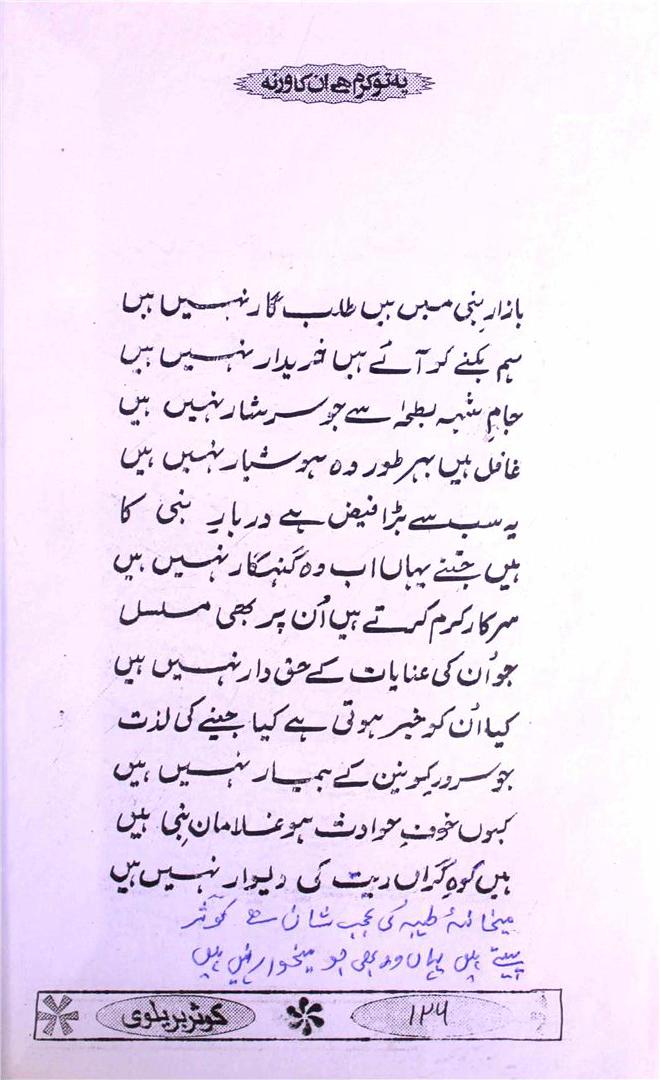 یہ تو کرم ہے ان کا ورنہ
بازارِ نبی میں ہیں طلب گار نہیں ہیں
ہم بکنے کو آئے ہیں خریدار نہیں ہیں
جامِ شہہ بطحٰی سے جو سرشار نہیں ہیں
غافل ہیں بہر طور وہ ہوشیار نہیں ہیں
یہ سب سے بڑا فیض ہے دربارِ نبی کا
ہیں جتنے یہاں اب وہ گنہگار نہیں ہیں
سرکار کرم کرتے ہیں اُن پر بھی مسلسل
جو اُن کی عنایات کے حق دار نہیں ہیں
کیا اُن کو خبر ہوتی ہے کیا جینے کی لذت
جو سرورِ کونین کے بیمار نہیں ہیں
کیوں خوفِ حوادث ہو غلامانِ نبی ہیں
ہیں کوہِ گراں ریت کی دیوار نہیں ہیں
میخانۂ طیبہ کی عجب شان ہے کوثر
پیتے ہیں یہاں وہ بھی جو میخوار نہیں ہیں
۱۲۶ کوثر بریلوی